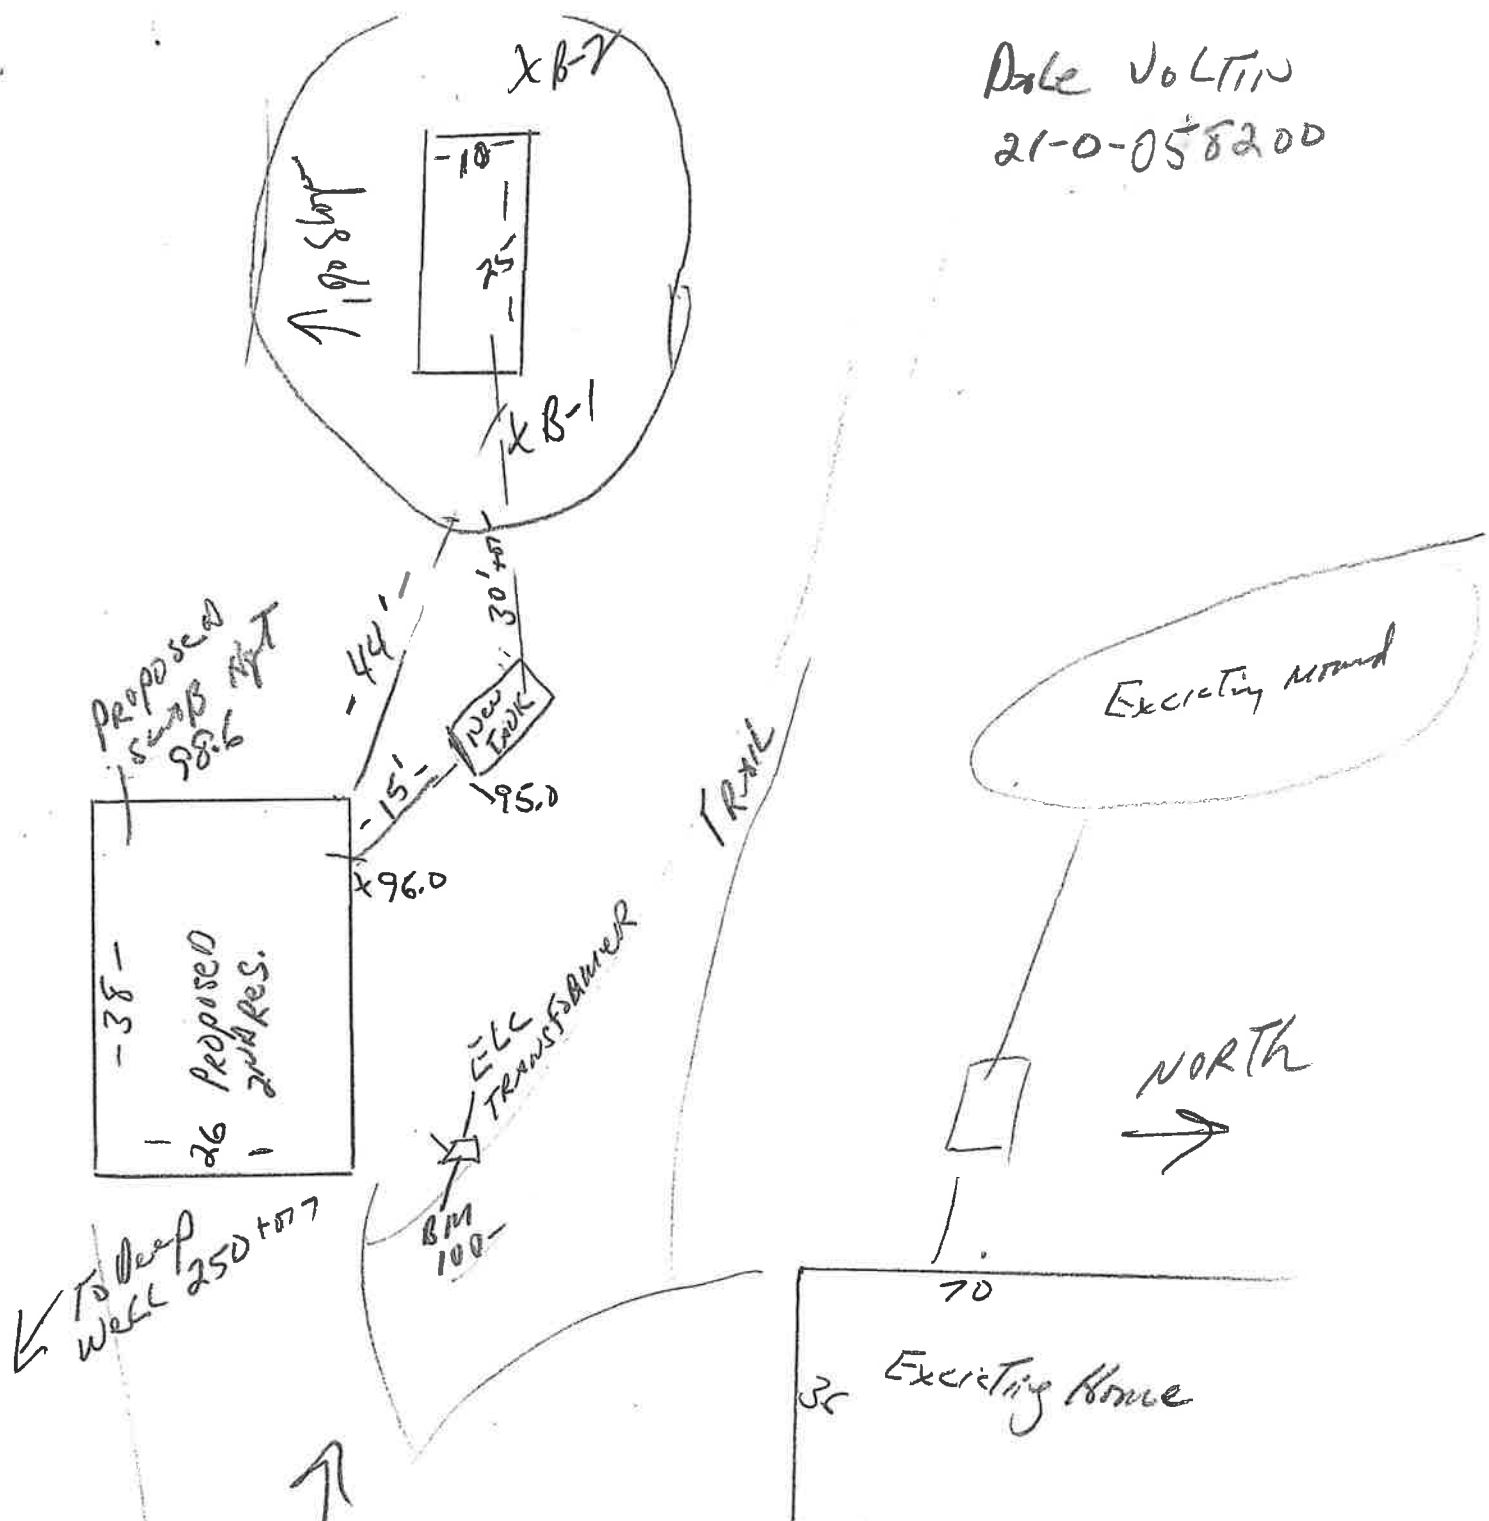 Dale VOLTIN
21-0-058200
X B-2
-10-
- 25 -
X B-1
30' +or-
- 44' -
PROPOSED
98.6
NEW
TANK
95.0
- 15' -
x 96.0
- 38 -
PROPOSED
2ND Res.
- 26 -
TRAIL
ELC
TRANSFORMER
BM
100-
Excisting mound
NORTh
TO Deep
WeLL 250
70
Excisting Home